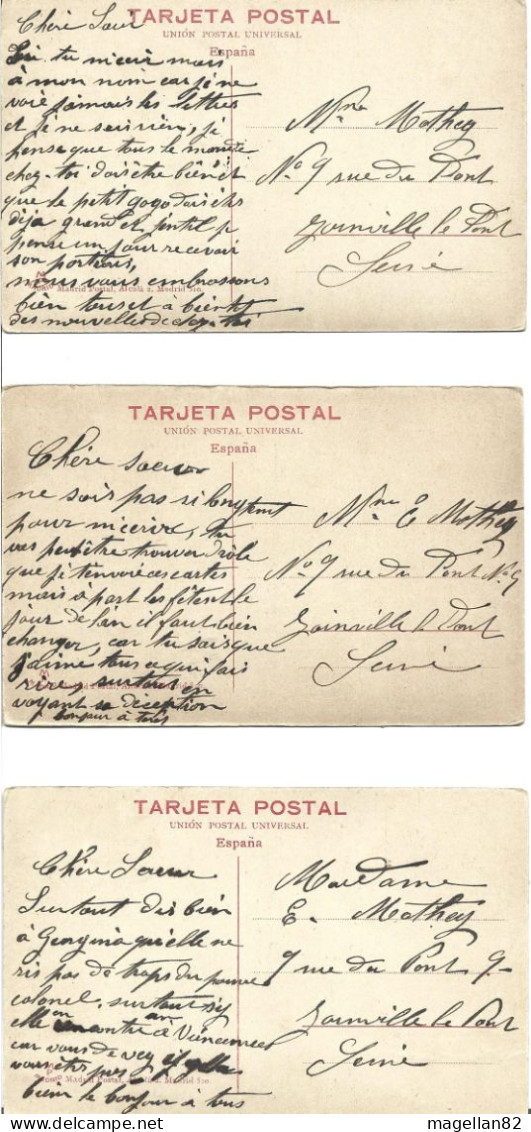 TARJETA POSTAL
UNIÓN POSTAL UNIVERSAL
España
Chère Sœur
tu m'ecrir mais
à mon nom car je ne
voie jamais les lettres
et je ne sais rien, je
pense que tous le monde
chez-toi dois être bien et
que le petit gogo dois être
déja grand et gentil je
pense un jour recevoir
son
nous vous embrassons
bien tous et à bientôt
des nouvelles de
Madrid Postal, Alcalá 2. Madrid
Mme Mathey
No 9 rue du Pont
Joinville le Pont
Seine
TARJETA POSTAL
UNIÓN POSTAL UNIVERSAL
España
Chère sœur
ne sois pas si longtemt
pour m'ecrire, tu
vas peut être trouver drôle
que je t'envoie ces cartes
mais a part les fêtent le
jour de l'an il faut bien
changer, car tu sais que
j'aime tous a qui fais
rires surtous en
voyant sa déception
bonjour à tous
Mme E Mathey
No 9 rue du Pont No 9
Joinville le Pont
Seine
TARJETA POSTAL
UNIÓN POSTAL UNIVERSAL
España
Chère Sœur
Surtout dis bien
à Georgina qu'elle ne
ris pas de trops du pauvre
colonel, surtout s'y
elle en rencontre à Vincennes
car vous de vez
vous
bien le bonjour à tous
Madrid Postal, Alcalá 2. Madrid
Madame
E. Mathey
9 rue du Pont 9-
Joinville le Pont
Seine
magellan82